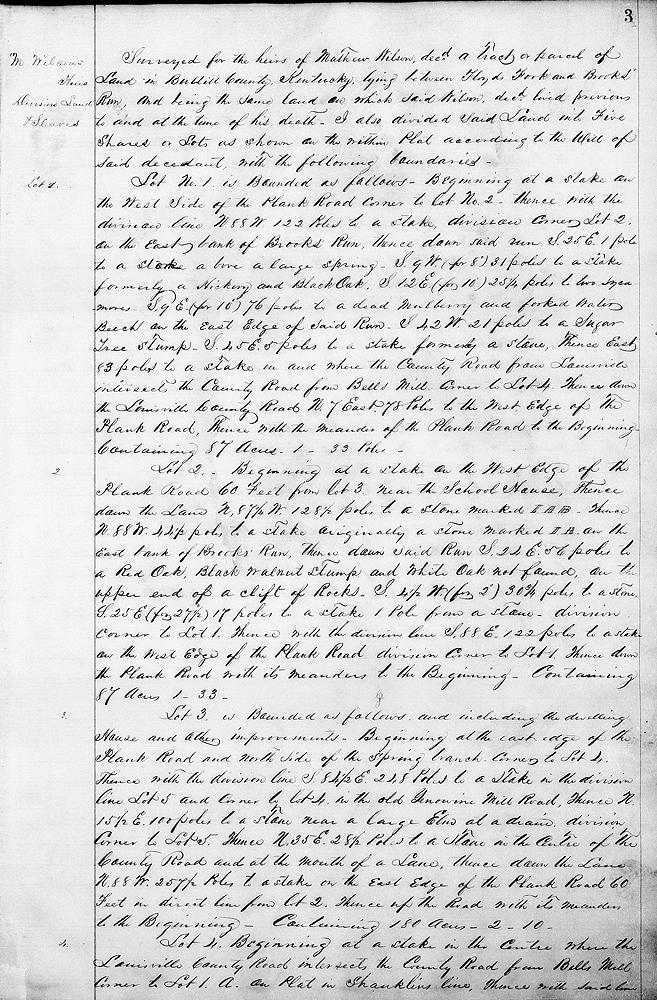 3
M Wilsons
Heirs
Division Land
& Slaves
Surveyed for the heirs of Mathew Wilson, decd a Tract or parcel of
Land in Bullitt County, Kentucky, lying between Floyds Fork and Brooks'
Run, and being the same land on which said Wilson, decd lived previous
to and at the time of his death - I also divided said Land into Five
Shares or Lots as shown on the within Plat according to the Will of
said decedant, with the following boundaries -
Lot 1.
Lot No. 1. is Bounded as follows - Beginning at a stake on
the West Side of the Plank Road Corner to lot No. 2 - thence with the
division line N 88 W. 122 Poles to a stake, division Corner Lot 2.
on the East bank of Brooks Run, thence down said run S. 25 E. 1 pole
to a stake above a large spring - S. 9 W. (for 8°) 31 poles to a stake
formerly a Hickory and Black Oak, S. 12 E. (for 10°) 25¼ poles to two syca
mores - S. 9 E. (for 10°) 76 poles to a dead Mulberry and forked Water
Beech on the East Edge of Said Run - S. 42 W. 21 poles to a Sugar
Tree Stump - S. 45 E. 5 poles to a stake formerly a stone, Thence East
83 poles to a stake in and where the County Road from Louisville
intersects the County Road from Bells Mill Corner to Lot 4. Thence down
the Louisville County Road N. 7 East. 78 Poles to the West Edge of the
Plank Road, Thence with the meander of the Plank Road to the Beginning
Containing 87 Acres - 1 - 33 Poles -
2
Lot 2. - Beginning at a stake on the West Edge of the
Plank Road 60 Feet from lot 3. near the School House, Thence
down the Lane N. 87½ W. 128½ poles to a stone marked - Thence
N. 88 W. 44½ poles to a stake originally a stone marked on the
East bank of Brooks Run, thence down Said Run S. 24 E. 56 poles to
a Red Oak, Black Walnut Stump and White Oak not found, on the
upper end of a clift of Rocks - S. 4½ W. (for 2°) 30¾ poles to a stone,
S. 25 E. (for 27½) 17 poles to a stake 1 Pole from a stone - division
Corner to Lot 1. Thence with the division line S. 88 E. 122 poles to a stake
on the West Edge of the Plank Road division Corner to Lot 1 Thence down
the Plank Road with its meanders to the Beginning - Containing
87 Acres 1 - 33 -
3.
Lot 3. is Bounded as follows. and including the dwelling
House and other improvements - Beginning at the east edge of the
Plank Road and north side of the Spring branch Corner to Lot 4.
Thence with the division line S 84½ E. 248 Poles to a Stake in the division
line Lot 5 and Corner to lot 4. in the old Mill Road, Thence N.
15½ E. 100 poles to a Stone near a large Elm at a drain, division
Corner to Lot 5. Thence N. 35 E. 28½ Poles to a Stone in the Centre of the
County Road and at the mouth of a Lane, thence down the Lane
N. 88 W. 257½ Poles to a stake on the East Edge of the Plank Road 60
Feet in direct line from lot 2. Thence up the Road with its meanders
to the Beginning - Containing 180 Acres - 2 - 10 -
4.
Lot 4. Beginning at a stake in the Centre where the
Louisville County Road intersects the County Road from Bells Mill
Corner to Lot 1. A. on Plat in Shanklins line, Thence with said line